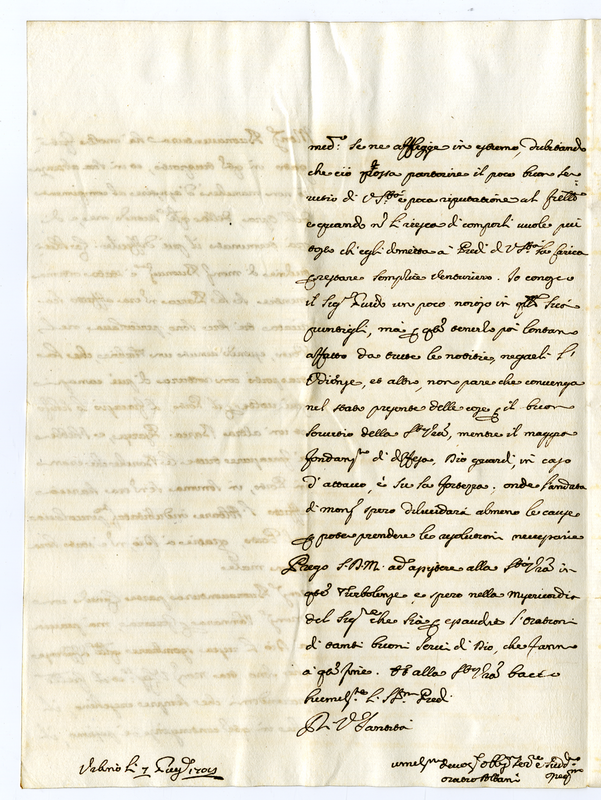 med.º se ne affligge in estremo, dubitando
che ciò possa partorire il poco buon ser
uitio di V. Stà e poca riputatione al frello
e quando nº li riesca di comporli uuole più
tosto ch'egli dimetta a Piedi di V. Stà la carica
e restare semplice Venturiero. Io conosco
il Sigr Guido un poco noioso in qti suoi
puntigli, mà p qto tenerlo poi lontano
affatto da tutte le notitie, negarli l'
Vdienze, et altro, non pare che conuenga
nel stato presente delle cose p il buon
seruitio della Stà Vra, mentre il maggior
fondamto di difesa, Dio guardi, in caso
d'attacco, è su la fortezza. onde l'andata
di monsr spero dilucidarà almeno le cause
p poter prendere le resolutioni necessarie
Prego S. D. M. ad assistere alla Stà Vra in
qte Turbolenze, e spero nella Misericordia
del Sigre che sia p esaudire l'orationi
di tanti buoni Serui di Dio, che fanno
a qto fine. Et alla Stà Vra bacio
humilte li SSmi Piedi
Di V. Santità
Vrbino li 7
umilmo deuotmo obligmo
Oratio Albani